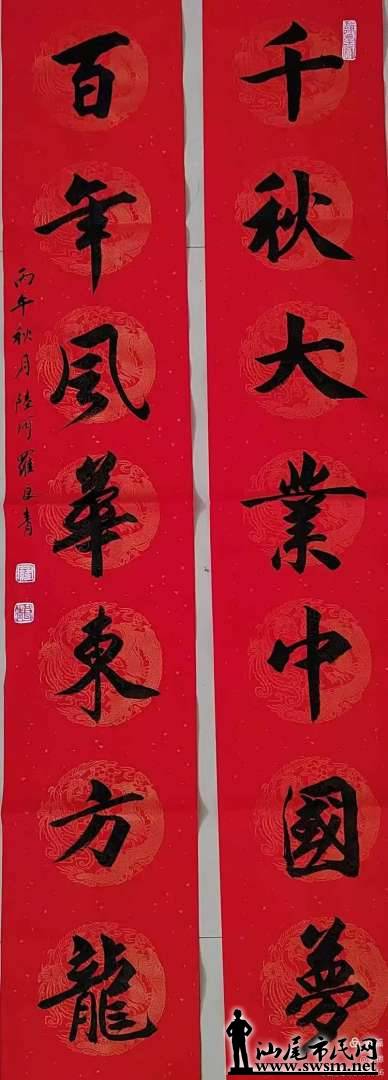 千秋大業中國夢
百年風華東方龍
丙午秋月陸河羅良青
汕尾市民网
www.swsm.net